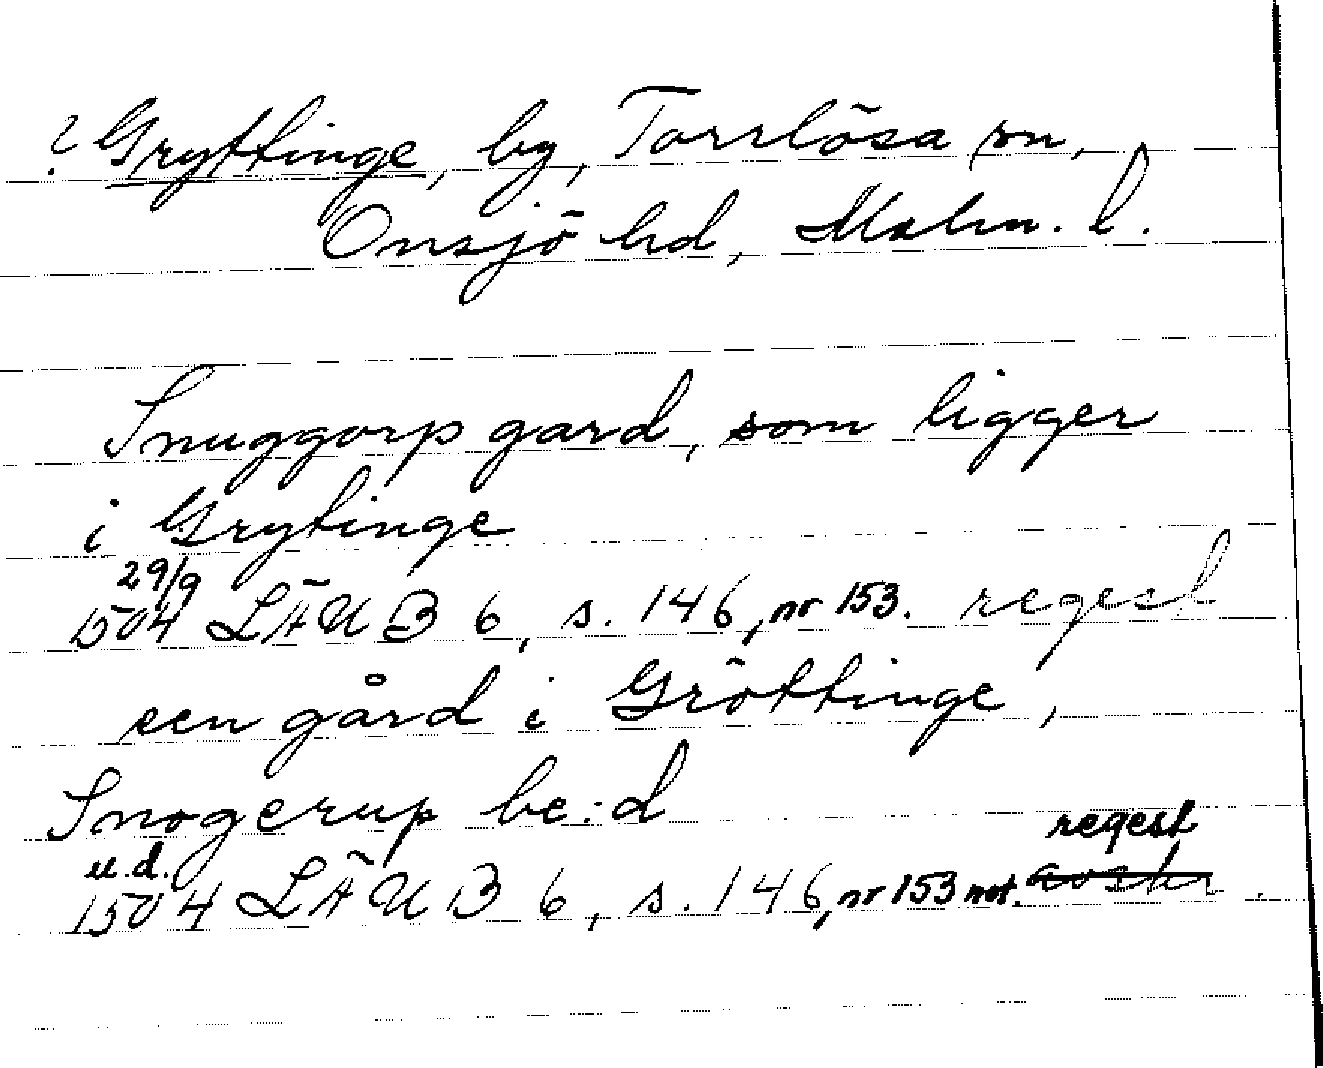 ? Gryttinge, by, Torrlösa sn,
Onsjö hd, Malm. l.
Snuggorp gard, som ligger
i Grytinge
29/9
1504 LÄUB 6, s. 146, nr 153. regest
een gård i Gröttinge,
Snogerup be:d
regest
u.d.
1504 LÄUB 6, s. 146, nr 153 not. avskr.